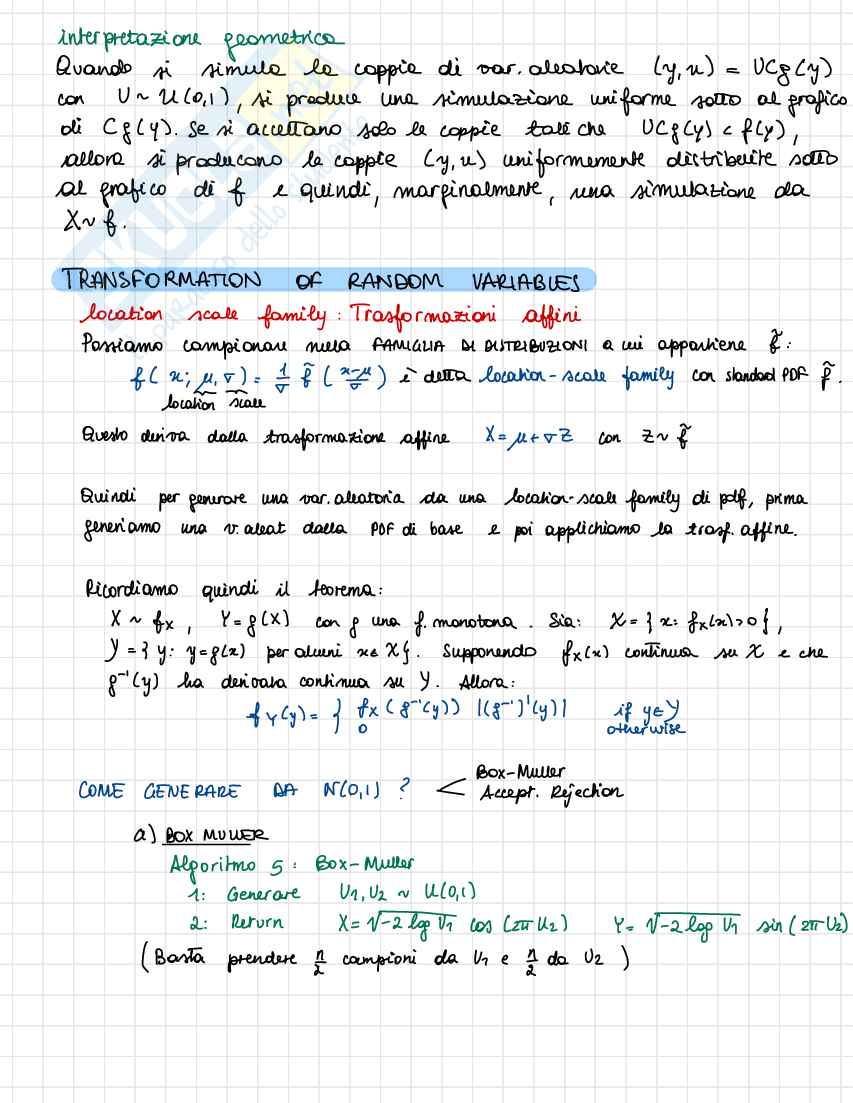 interpretazione geometrica
Quando si simula le coppie di var. aleatorie (y,u) = UCg(y)
con U ~ U(0,1), si produce una simulazione uniforme sotto al grafico
di Cg(y). Se si accettano solo le coppie tali che UCg(y) < f(y),
allora si producono le coppie (y,u) uniformemente distribuite sotto
al grafico di f e quindi, marginalmente, una simulazione da
X ~ f.
TRANSFORMATION OF RANDOM VARIABLES
location scale family : Trasformazioni affini
Possiamo campionare nella FAMIGLIA DI DISTRIBUZIONI a cui appartiene f̃ :
f(x; μ, σ) = 1/σ f̃ ((x-μ)/σ) è detta location-scale family con standard PDF f̃.
location scale
Questo deriva dalla trasformazione affine X = μ + σZ con Z ~ f̃
Quindi per generare una var. aleatoria da una location-scale family di pdf, prima
generiamo una v. aleat dalla PDF di base e poi applichiamo la trasf. affine.
Ricordiamo quindi il teorema:
X ~ fX , Y = g(X) con g una f. monotona. Sia: X = { x: fX(x)>0 },
Y = { y: y=g(x) per alcuni x∈ X}. Supponendo fX(x) continua su X e che
g⁻¹(y) ha derivata continua su Y. Allora:
fY(y) = { fX(g⁻¹(y)) |(g⁻¹)'(y)| if y∈Y
0 otherwise
COME GENERARE DA N(0,1) ? < Box-Muller
Accept. Rejection
a) BOX MULLER
Algoritmo 5 : Box-Muller
1: Generare U1, U2 ~ U(0,1)
2: Return X = √-2 log U1 cos (2π U2) Y = √-2 log U1 sin (2π U2)
(Basta prendere n/2 campioni da U1 e n/2 da U2 )